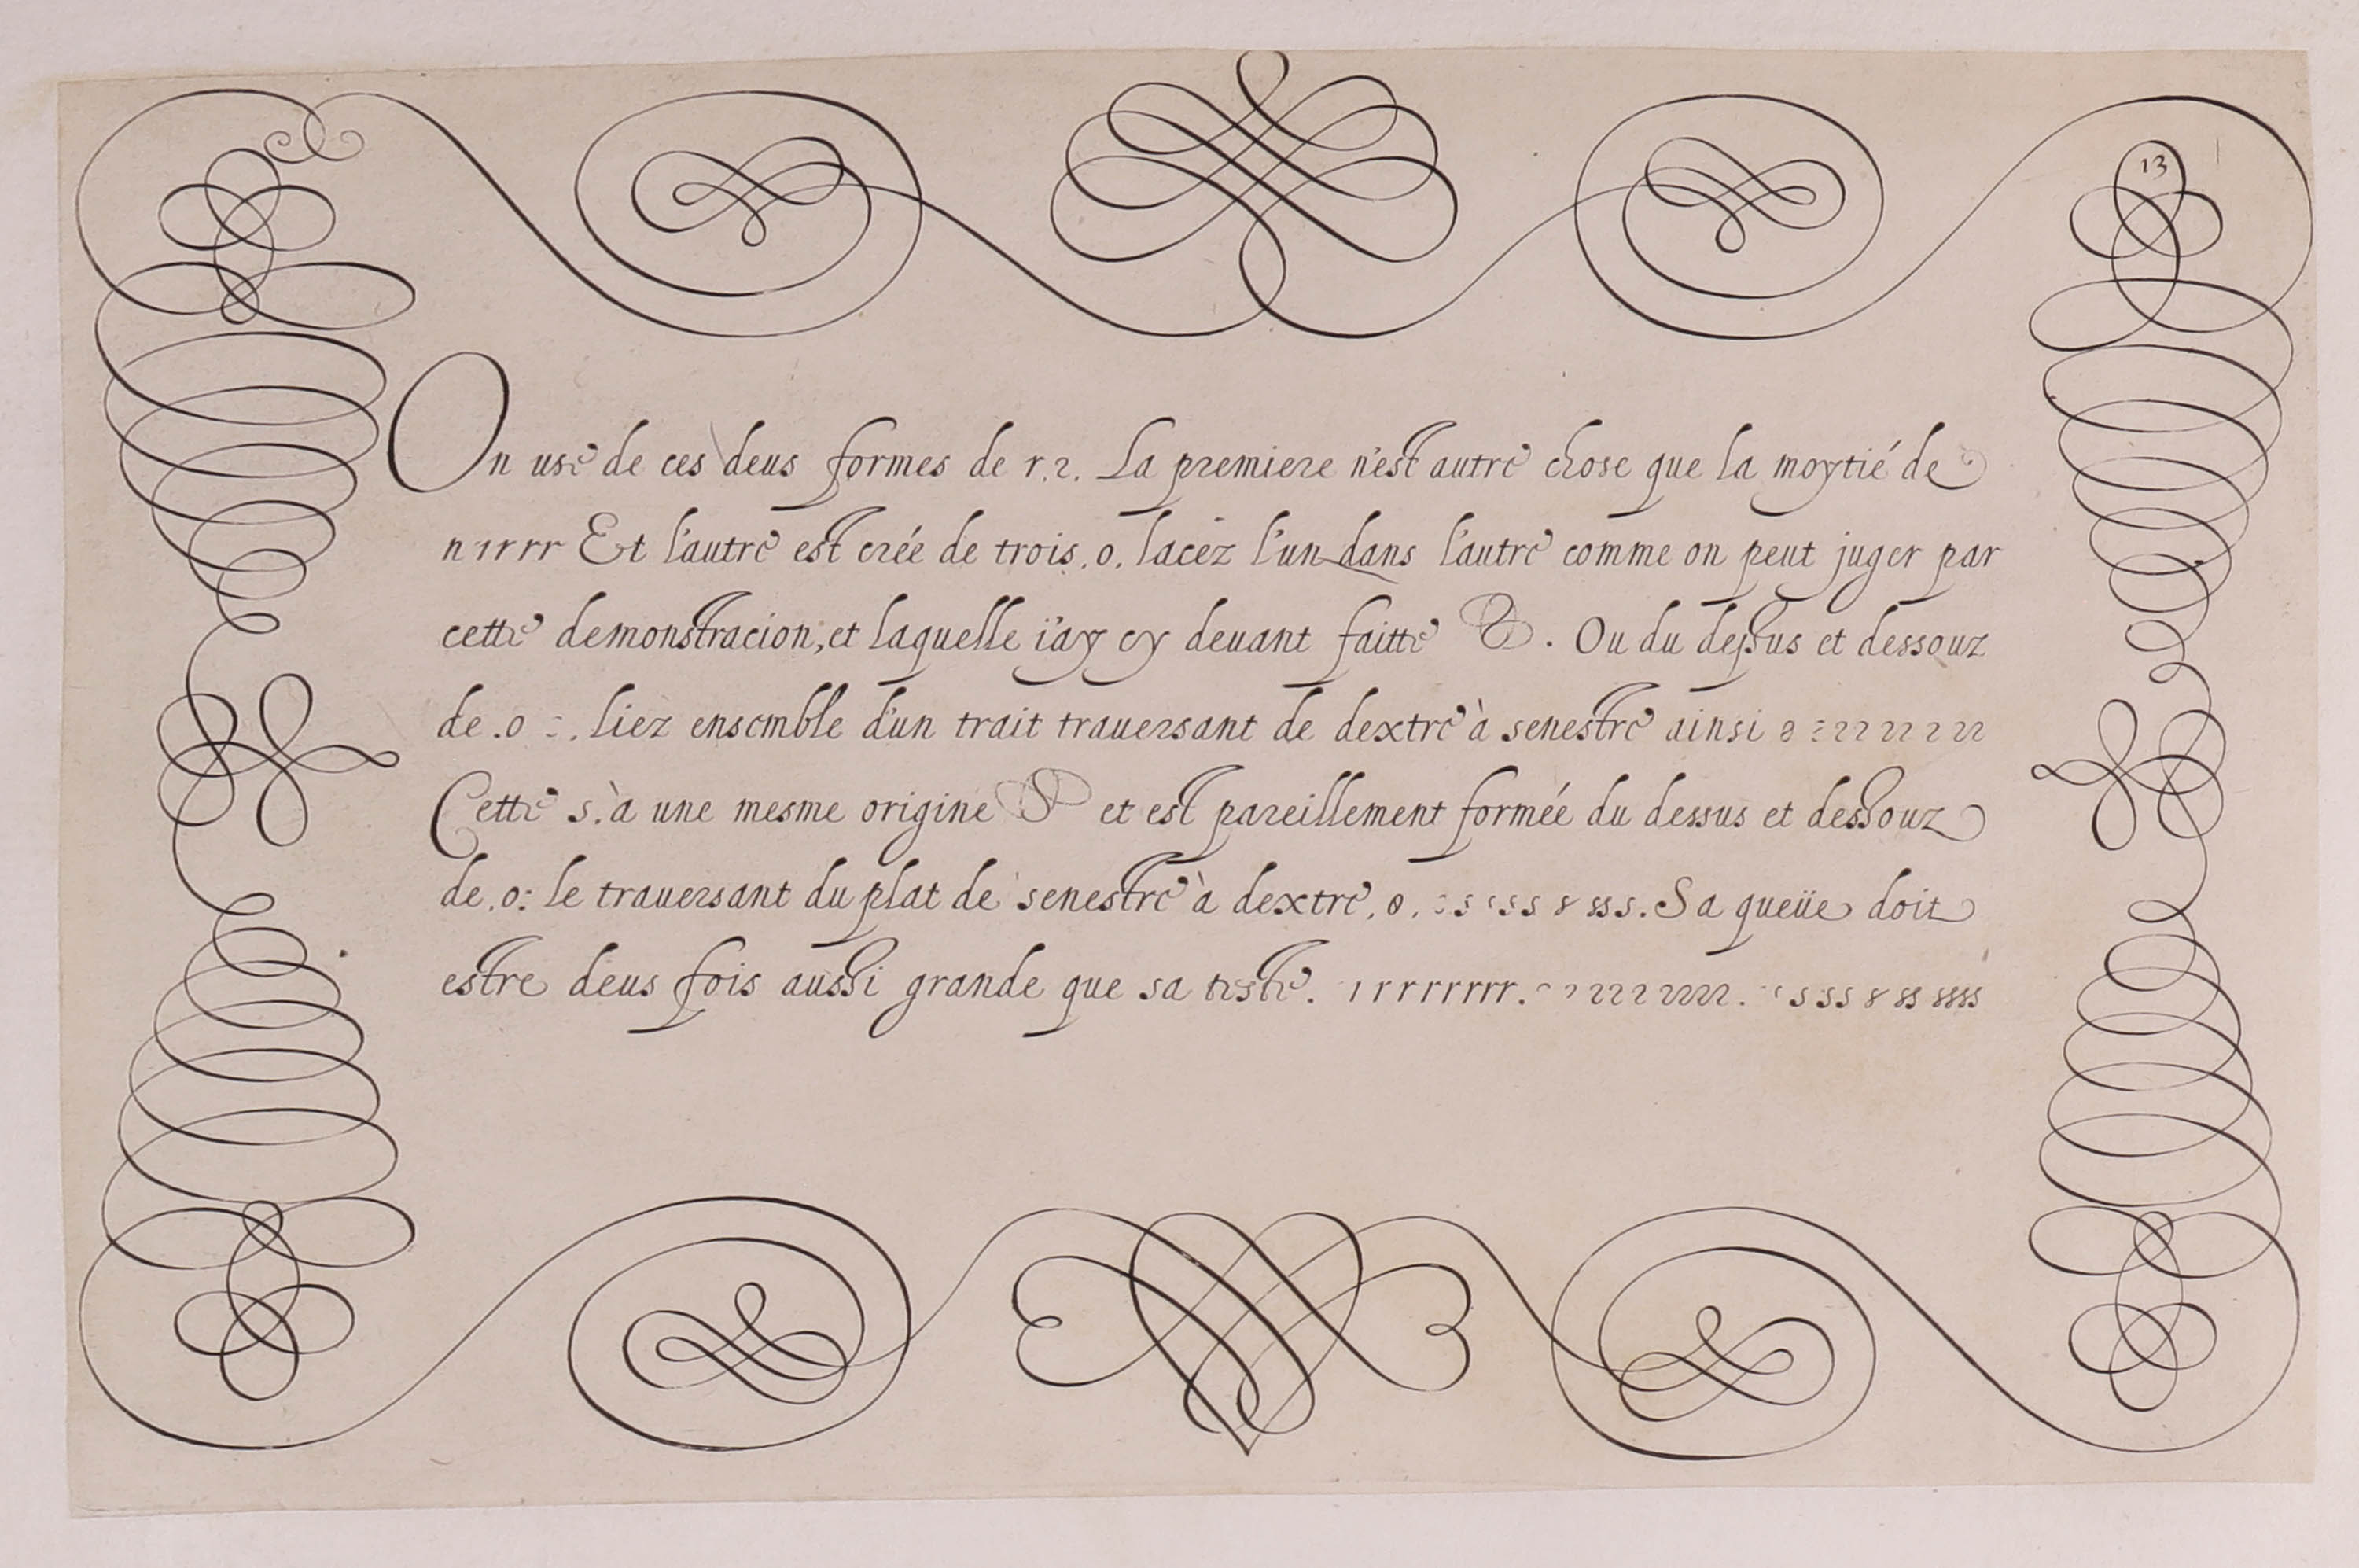 13
On use de ces deus formes de r.ꝛ. La premiere n'est autre chose que la moytié de
n ırrr Et l'autre est crée de trois .o. lacez l'un dans l'autre comme on peut juger par
cette demonstracion, et laquelle i'ay cy deuant faitte . Ou du dessus et dessouz
de .o liez ensemble d'un trait trauersant de dextre à senestre ainsi ꝛꝛ ꝛꝛ ꝛ ꝛꝛ
Cette s. à une mesme origine S et est pareillement formée du dessus et dessouz
de .o: le trauersant du plat de senestre à dextre, o. s ss sss. Sa queüe doit
estre deus fois aussi grande que sa teste. ırrrrrrr. ꝛꝛꝛꝛ ꝛꝛꝛꝛ. s ss ss ssss